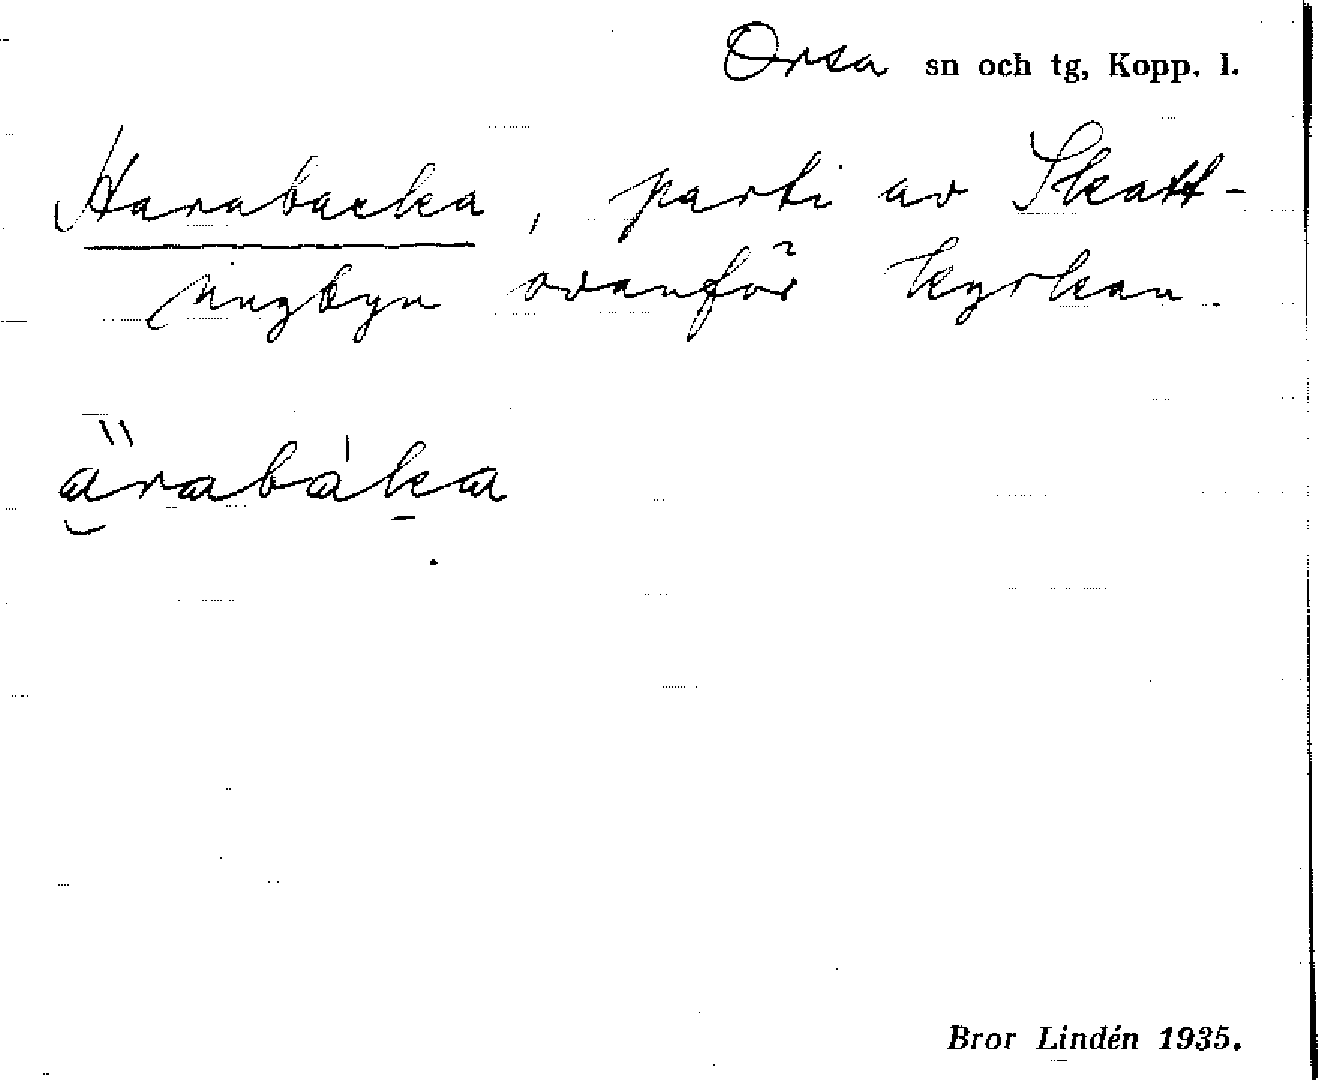 Orsa sn och tg, Kopp. l.
Harabacka, parti av Skatt-
ungbyn ovanför kyrkan.
ärabáka
Bror Lindén 1935.